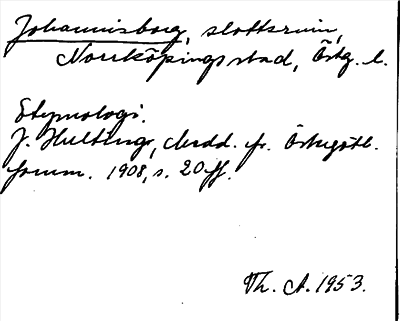 Johannisborg, slottsruin,
Norrköpings stad, Östg. l.
Etymologi.
J. Hultings, Medd. fr. Östergötl.
fornm. 1908, s. 20 ff.
Th. A. 1953.